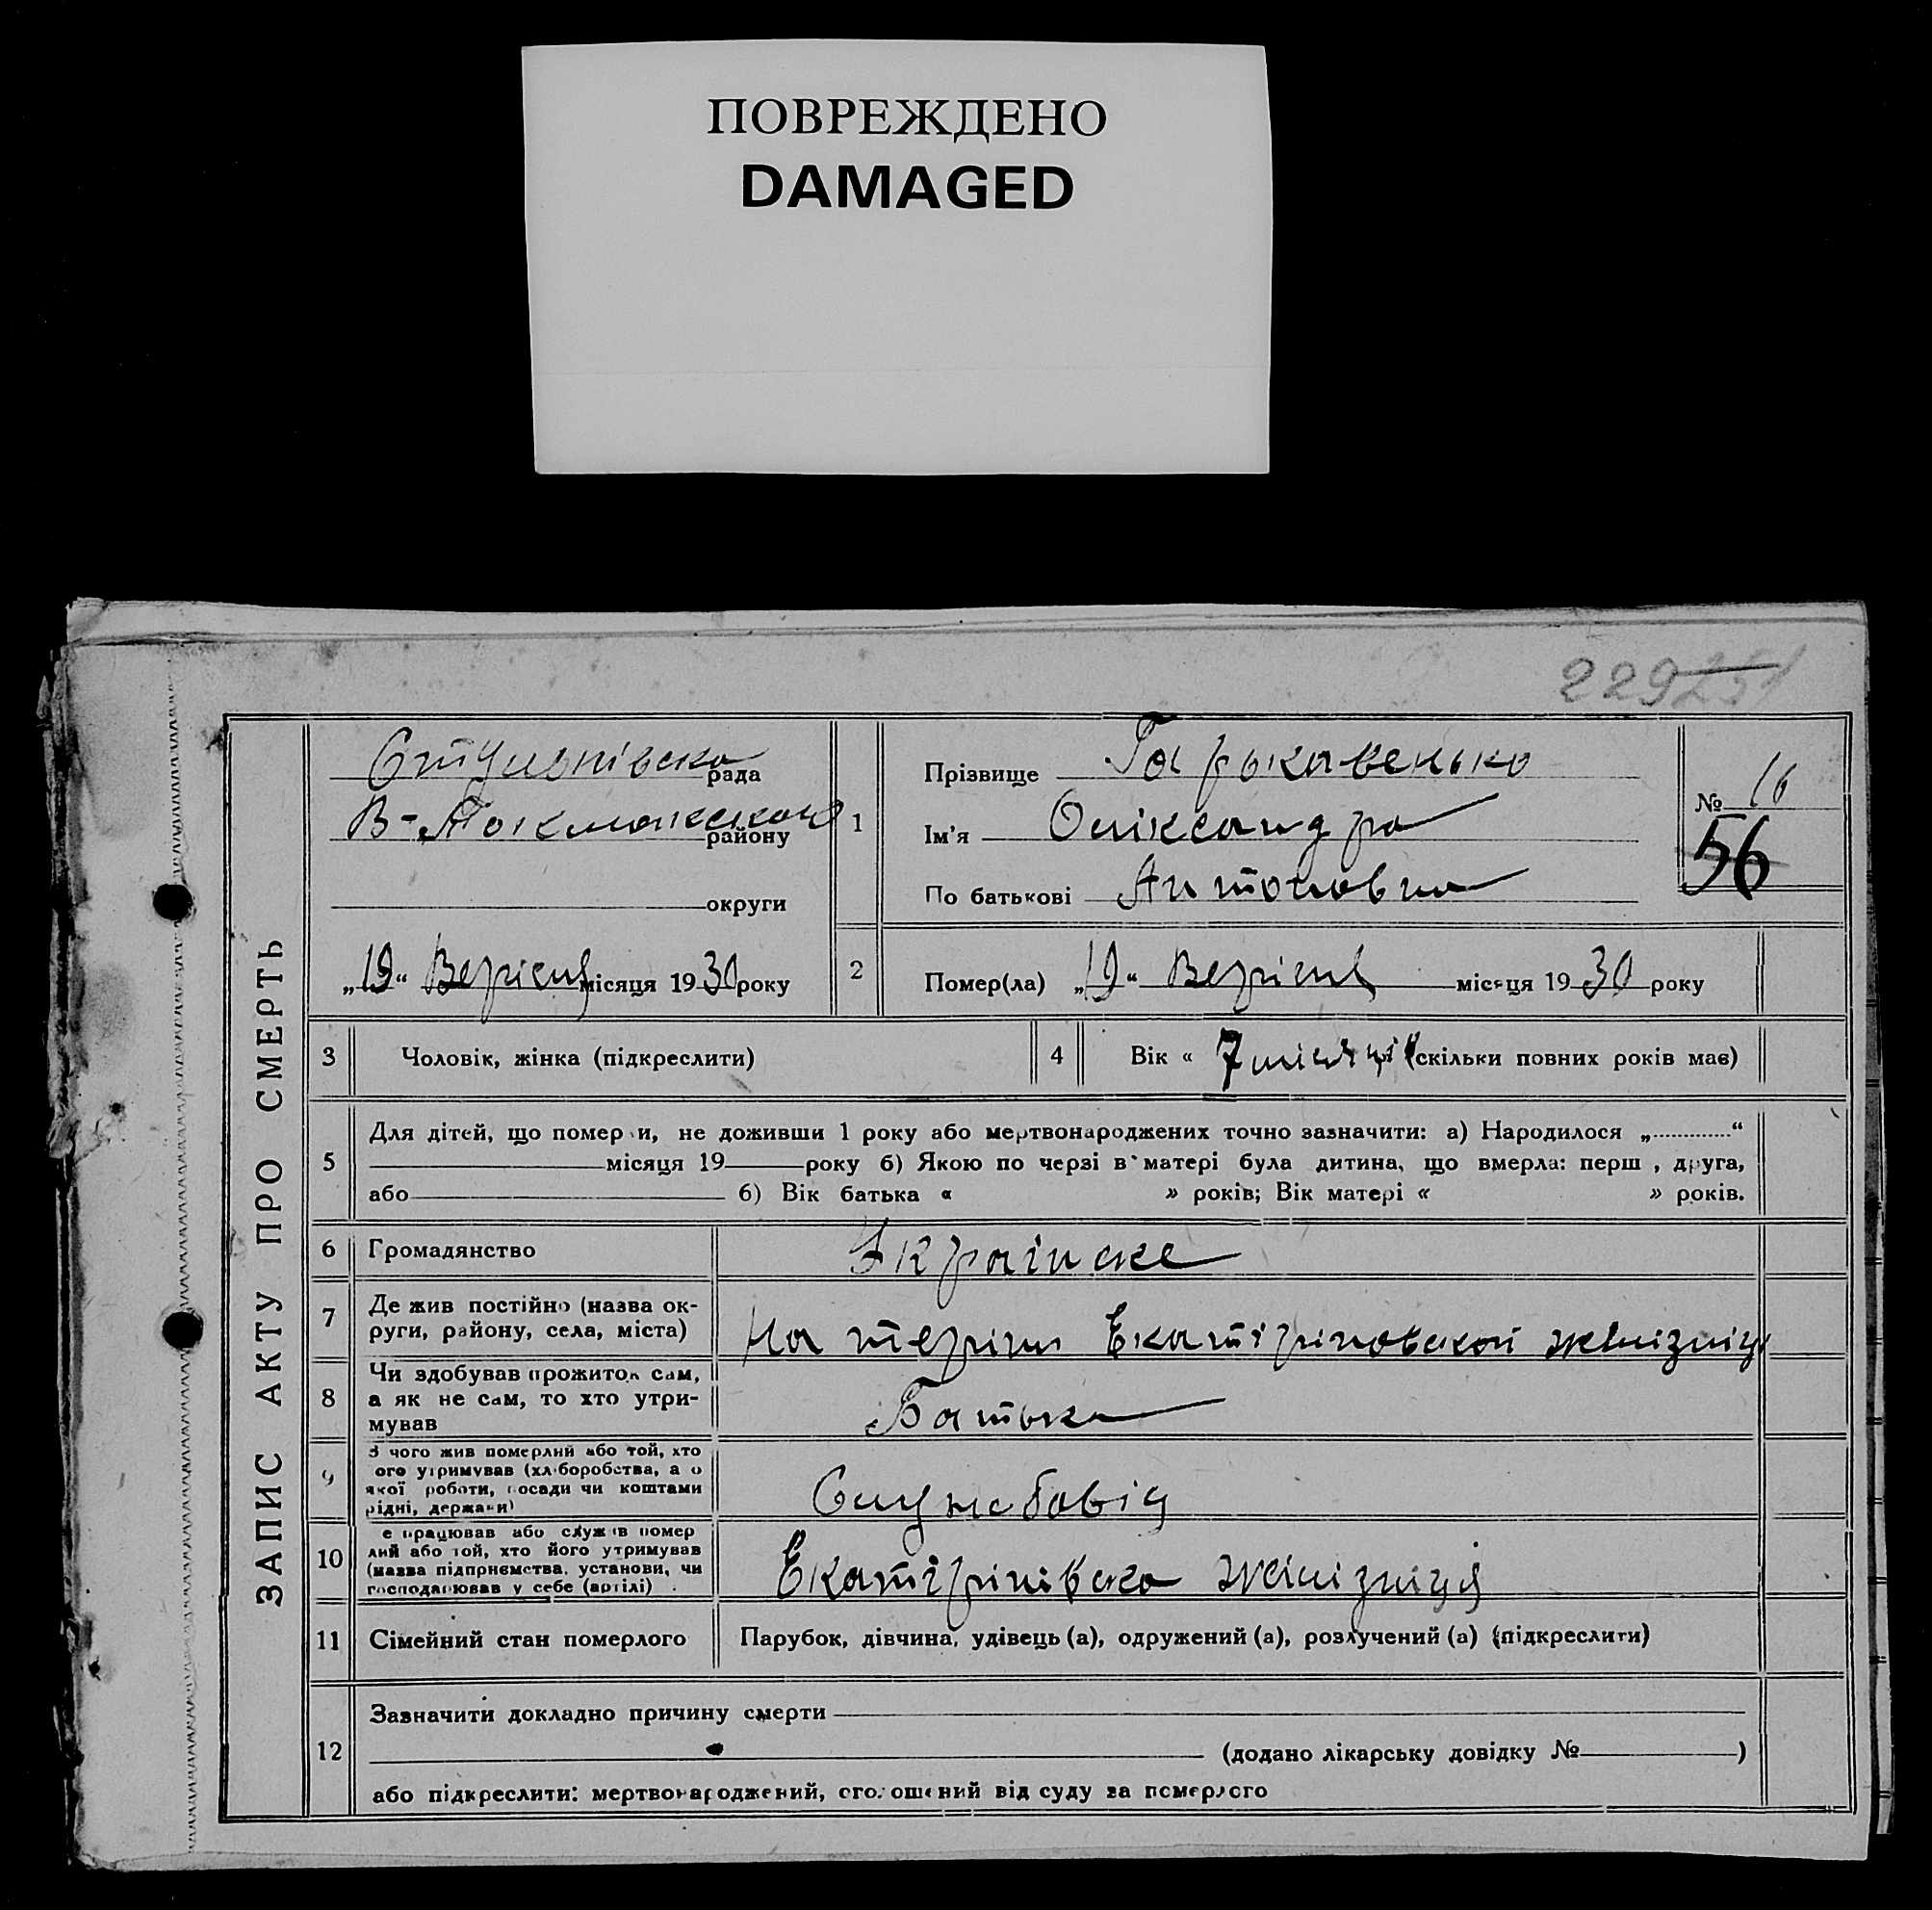 ПОВРЕЖДЕНО
DAMAGED
229 251
ЗАПИС АКТУ ПРО СМЕРТЬ
рада
В-Токмакского
району
округи
„19“ Верісня місяця 1930 року
1
Прізвище Гарькавенько
Ім'я Оліксандра
По батькові Антоновна
№ 16
56
2
Помер(ла) „19“ Верісня місяця 1930 року
3 Чоловік, жінка (підкреслити)
4 Вік « 7 місяців (скільки повних років має)
5
Для дітей, що померли, не доживши 1 року або мертвонароджених точно зазначити: а) Народилося „ “
місяця 19 року б) Якою по черзі в матері була дитина, що вмерла: перша, друга,
або б) Вік батька « » років; Вік матері « » років.
6 Громадянство Українске
7
Де жив постійно (назва ок-
руги, району, села, міста)
На теріпи Екатіріновской
8
Чи здобував прожиток сам,
а як не сам, то хто утри-
мував
Батько
9
З чого жив померлий або той, хто
ого утримував (хліборобства, або
якої роботи, посади чи коштами
рідні, держави)
Служебовіц
10
е працював або служив помер
лий або той, хто його утримував
(назва підприємства, установи, чи
господарював у себе (артілі)
Екатірінівска жілізниця
11 Сімейний стан померлого Парубок, дівчина, удівець (а), одружений (а), розлучений (а) (підкреслити)
12
Зазначити докладно причину смерти
(додано лікарську довідку № )
або підкреслити: мертвонароджений, оголошений від суду за померлого